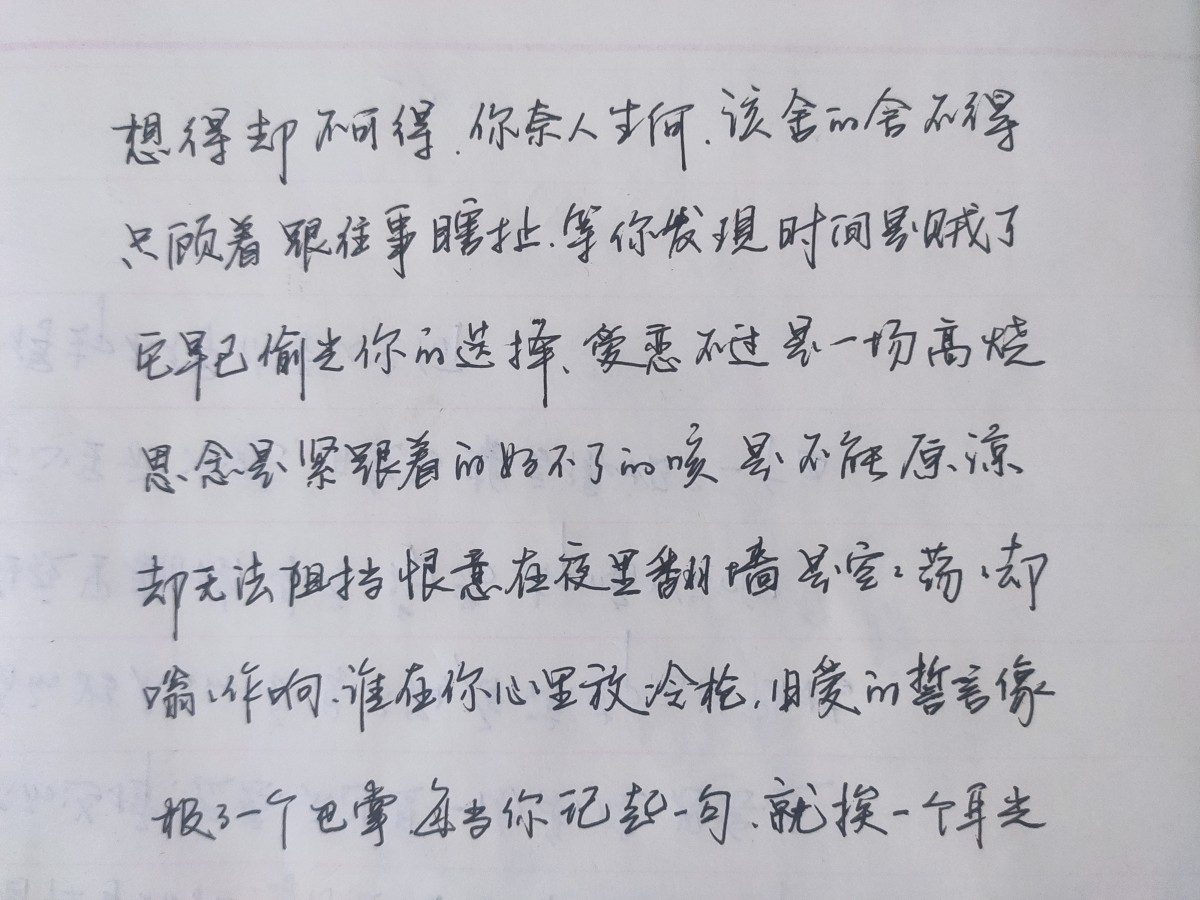 想得却不可得.你奈人生何.该舍的舍不得
只顾着跟往事瞎扯.等你发现时间是贼了
它早已偷光你的选择、爱恋不过是一场高烧
思念是紧跟着的好不了的咳是不能原谅
却无法阻挡恨意在夜里翻墙是空〻荡〻却
嗡〻作响.谁在你心里放冷枪.旧爱的誓言像
极了一个巴掌.每当你记起一句.就挨一个耳光